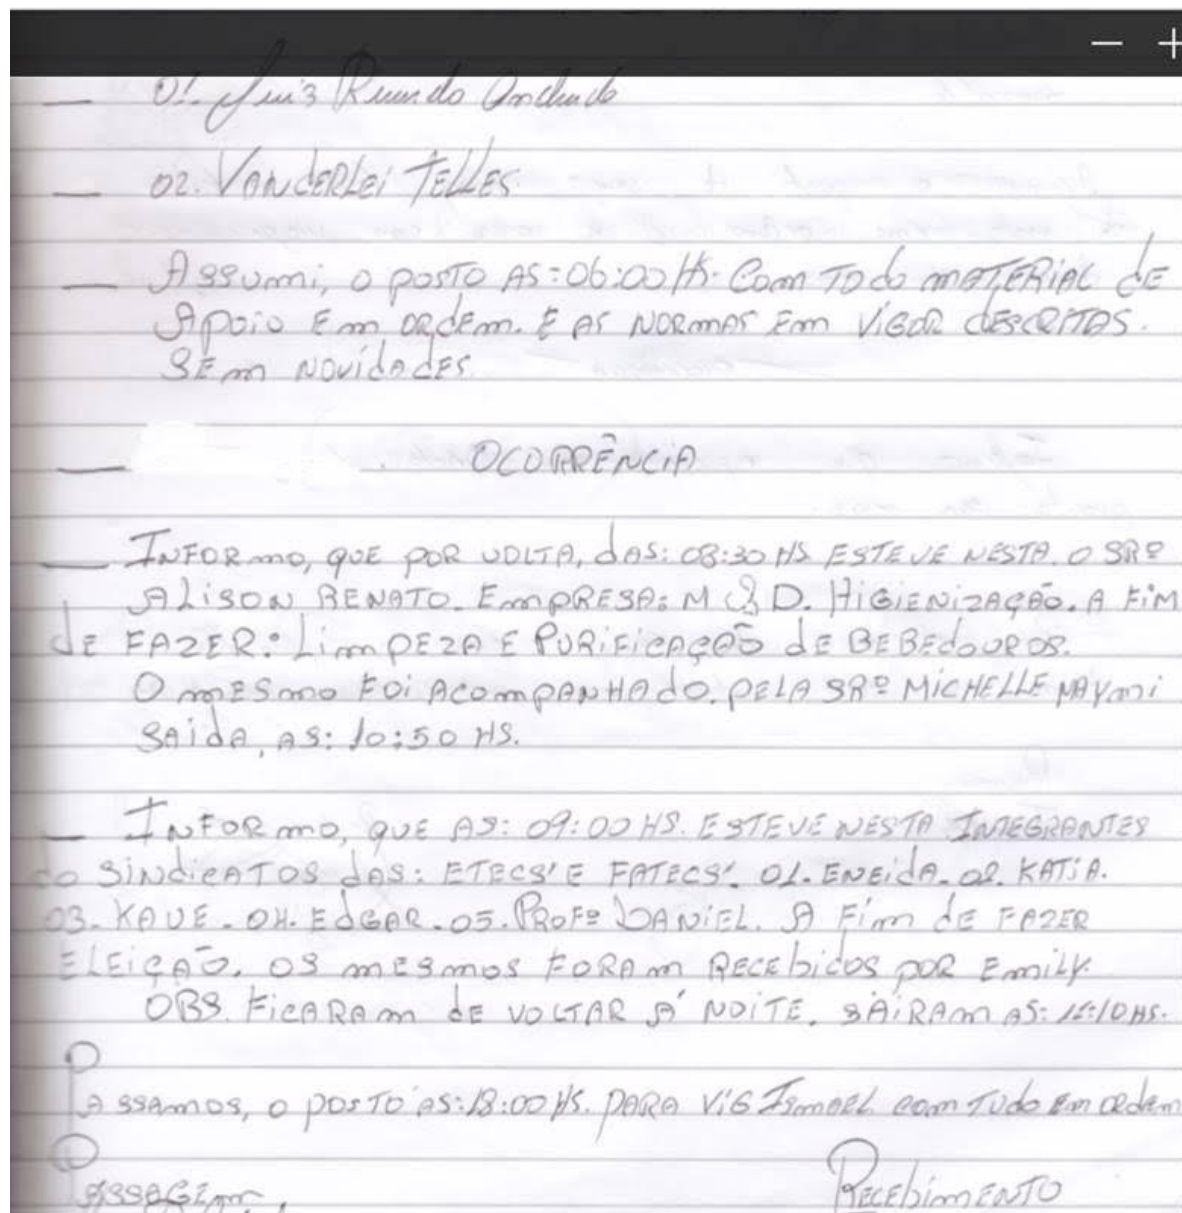 01. Luiz
02. VANDERLEI TELLES.
Assumi, o posto AS: 06:00 Hs. Com Todo MATERIAL dE
Apoio Em ordem. E AS NORMAS Em VIGOR dESCRITAS.
SEm NOVIdAdES.
OCORRÊNCIA
INFORmo, QUE POR VOLTA, dAS: 08:30 HS ESTEVE NESTA. O SRº
ALISON RENATO. EmPRESA: M & D. HIGIENIZAÇÃO. A FIM
dE FAZER: LimPEZA E PURIFICAÇÃO dE BEBEdOUROS.
O mESmo FOI ACOmPANHAdo. PELA SRº MICHELLE MAYmi
SAIdA, AS: 10:50 HS.
INFORmo, QUE AS: 09:00 HS. ESTEVE NESTA INTEGRANTES
do SINdICATOS dAS: ETECS' E FATECS'. 01. ENEIdA. 02. KATIA.
03. KAUE. 04. EdGAR. 05. PROFº DANIEL. A Fim dE FAZER
ELEIÇÃO. OS mESmos FORAm RECEbIdOS POR EmILY.
OBS. FICARAm dE VOLTAR Á NOITE. SAIRAm AS:
PASSAmos, o posTo AS: 18:00 HS. PARA VIG ISmAEL com TUdo Em ordem
PASSAGEm
RECEbimENTO